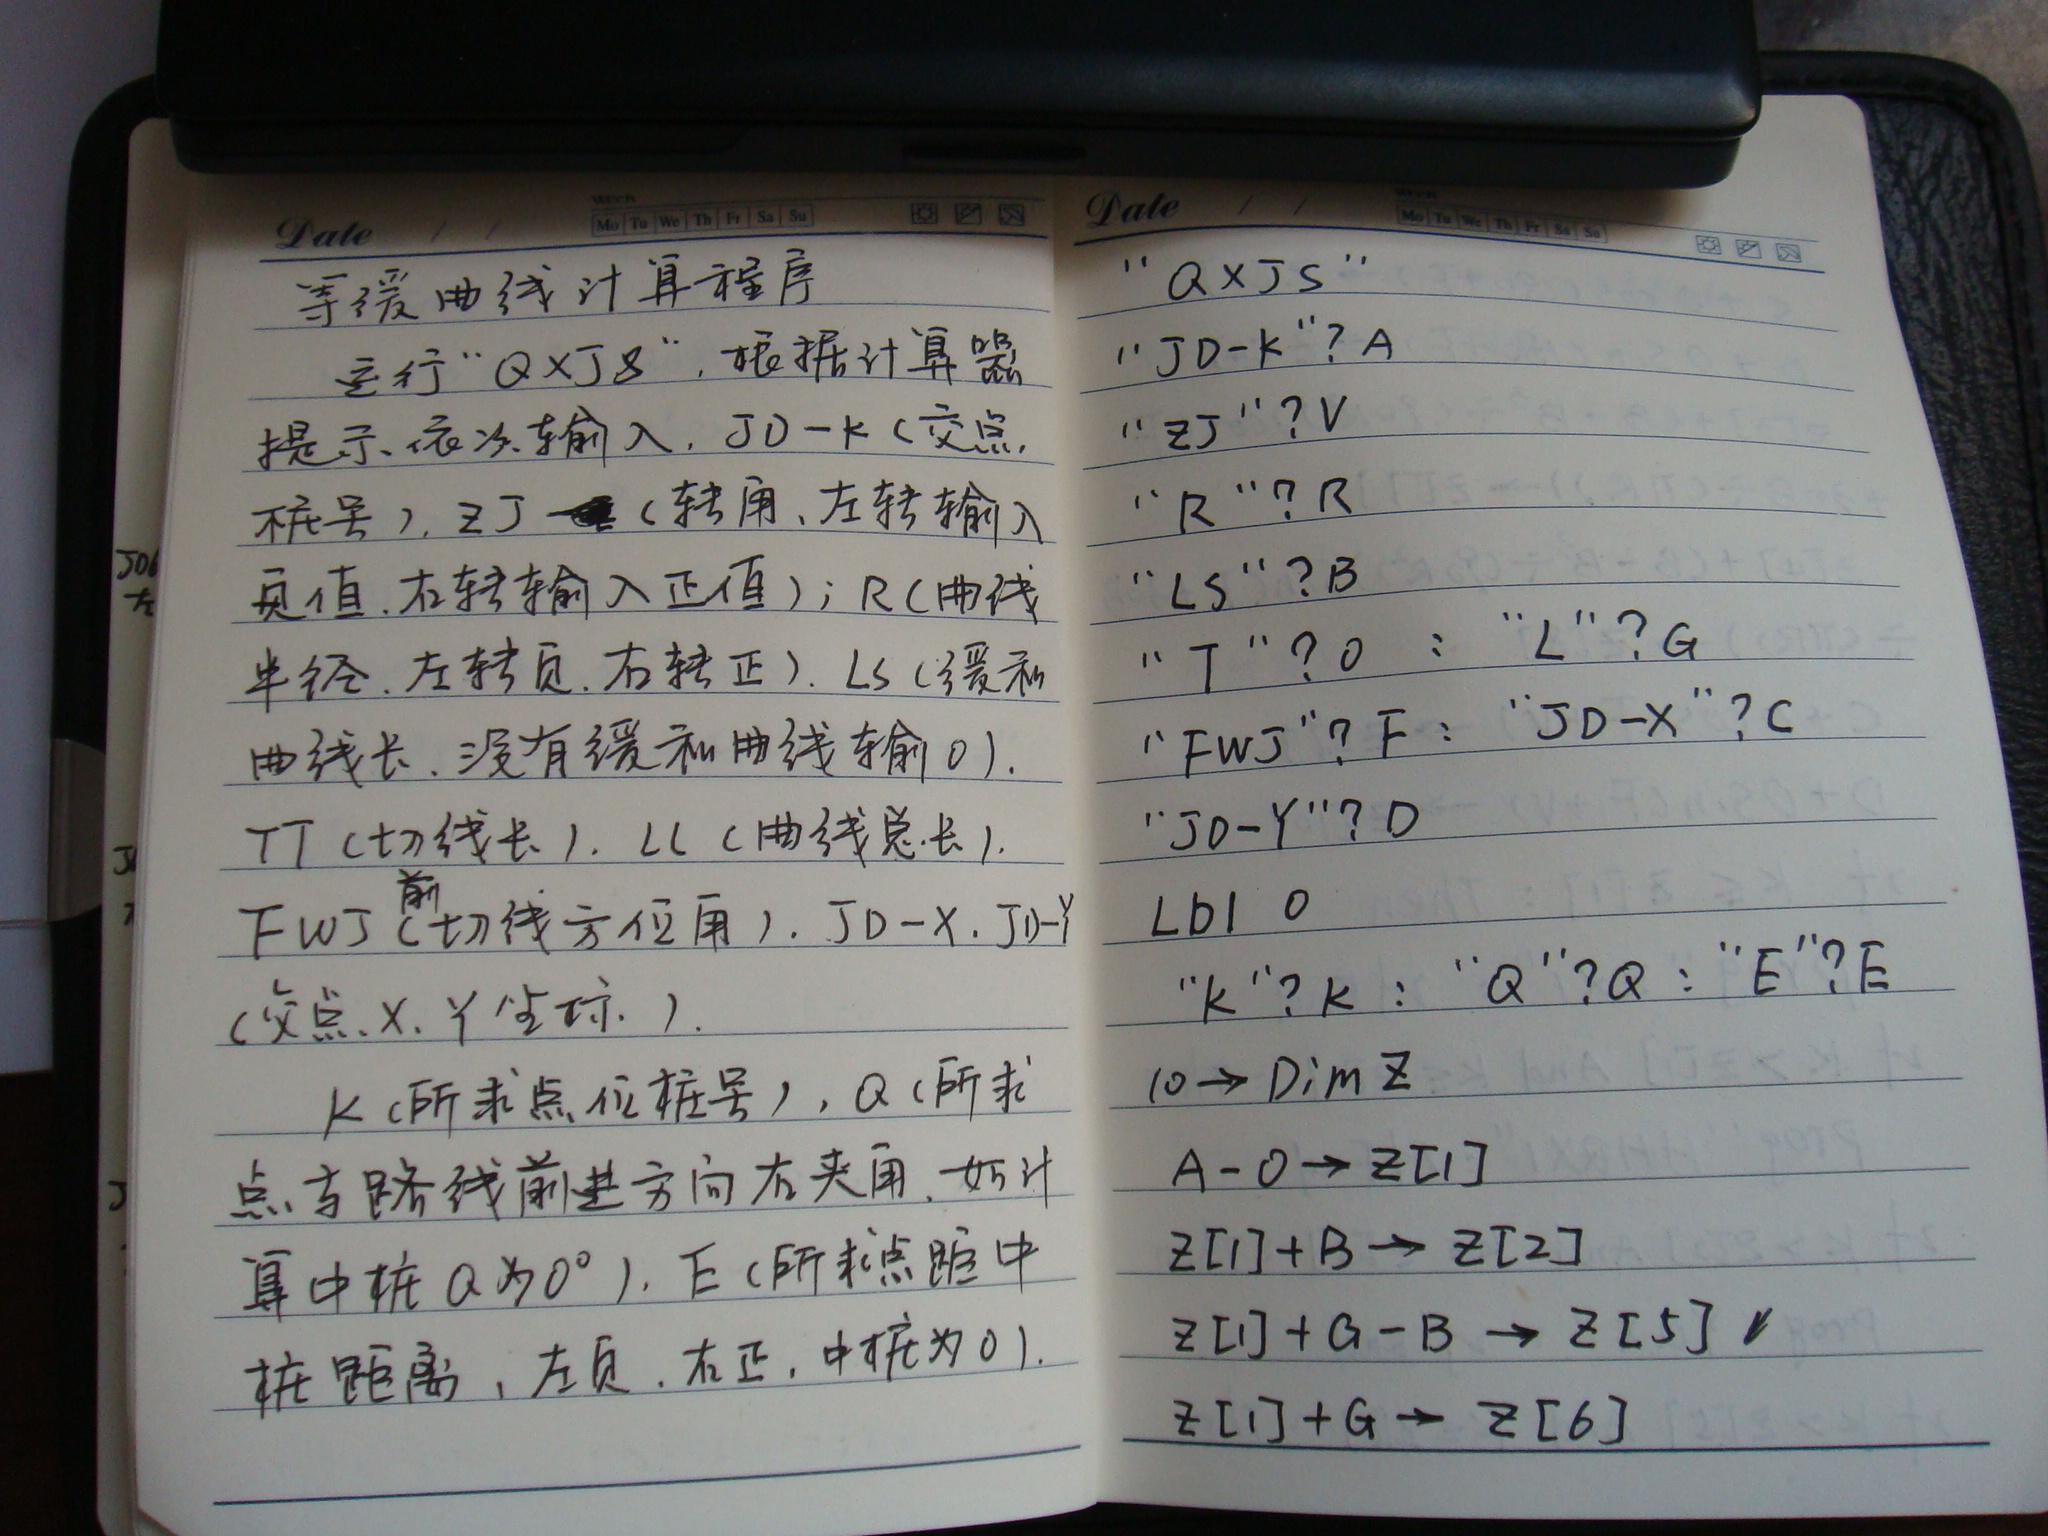 Date / /
Week
Mo Tu We Th Fr Sa Su
等缓曲线计算程序
运行"QXJS",根据计算器
提示、依次输入,JD-K(交点
桩号),ZJ(转角、左转输入
负值、右转输入正值);R(曲线
半径、左转负、右转正).LS(缓和
曲线长、没有缓和曲线输0).
TT(切线长).LL(曲线总长).
FWJ(前切线方位角).JD-X.JD-Y
(交点、X、Y坐标).
K(所求点位桩号),Q(所求
点与路线前进方向右夹角、如计
算中桩Q为0°).E(所求点距中
桩距离,左负、右正,中桩为0).
Date / /
Week
Mo Tu We Th Fr Sa Su
"QXJS"
"JD-K"?A
"ZJ"?V
"R"?R
"LS"?B
"T"?O : "L"?G
"FWJ"?F : "JD-X"?C
"JD-Y"?D
Lbl 0
"K"?K : "Q"?Q : "E"?E
10→Dim Z
A-O→Z[1]
Z[1]+B→Z[2]
Z[1]+G-B→Z[5]
Z[1]+G→Z[6]